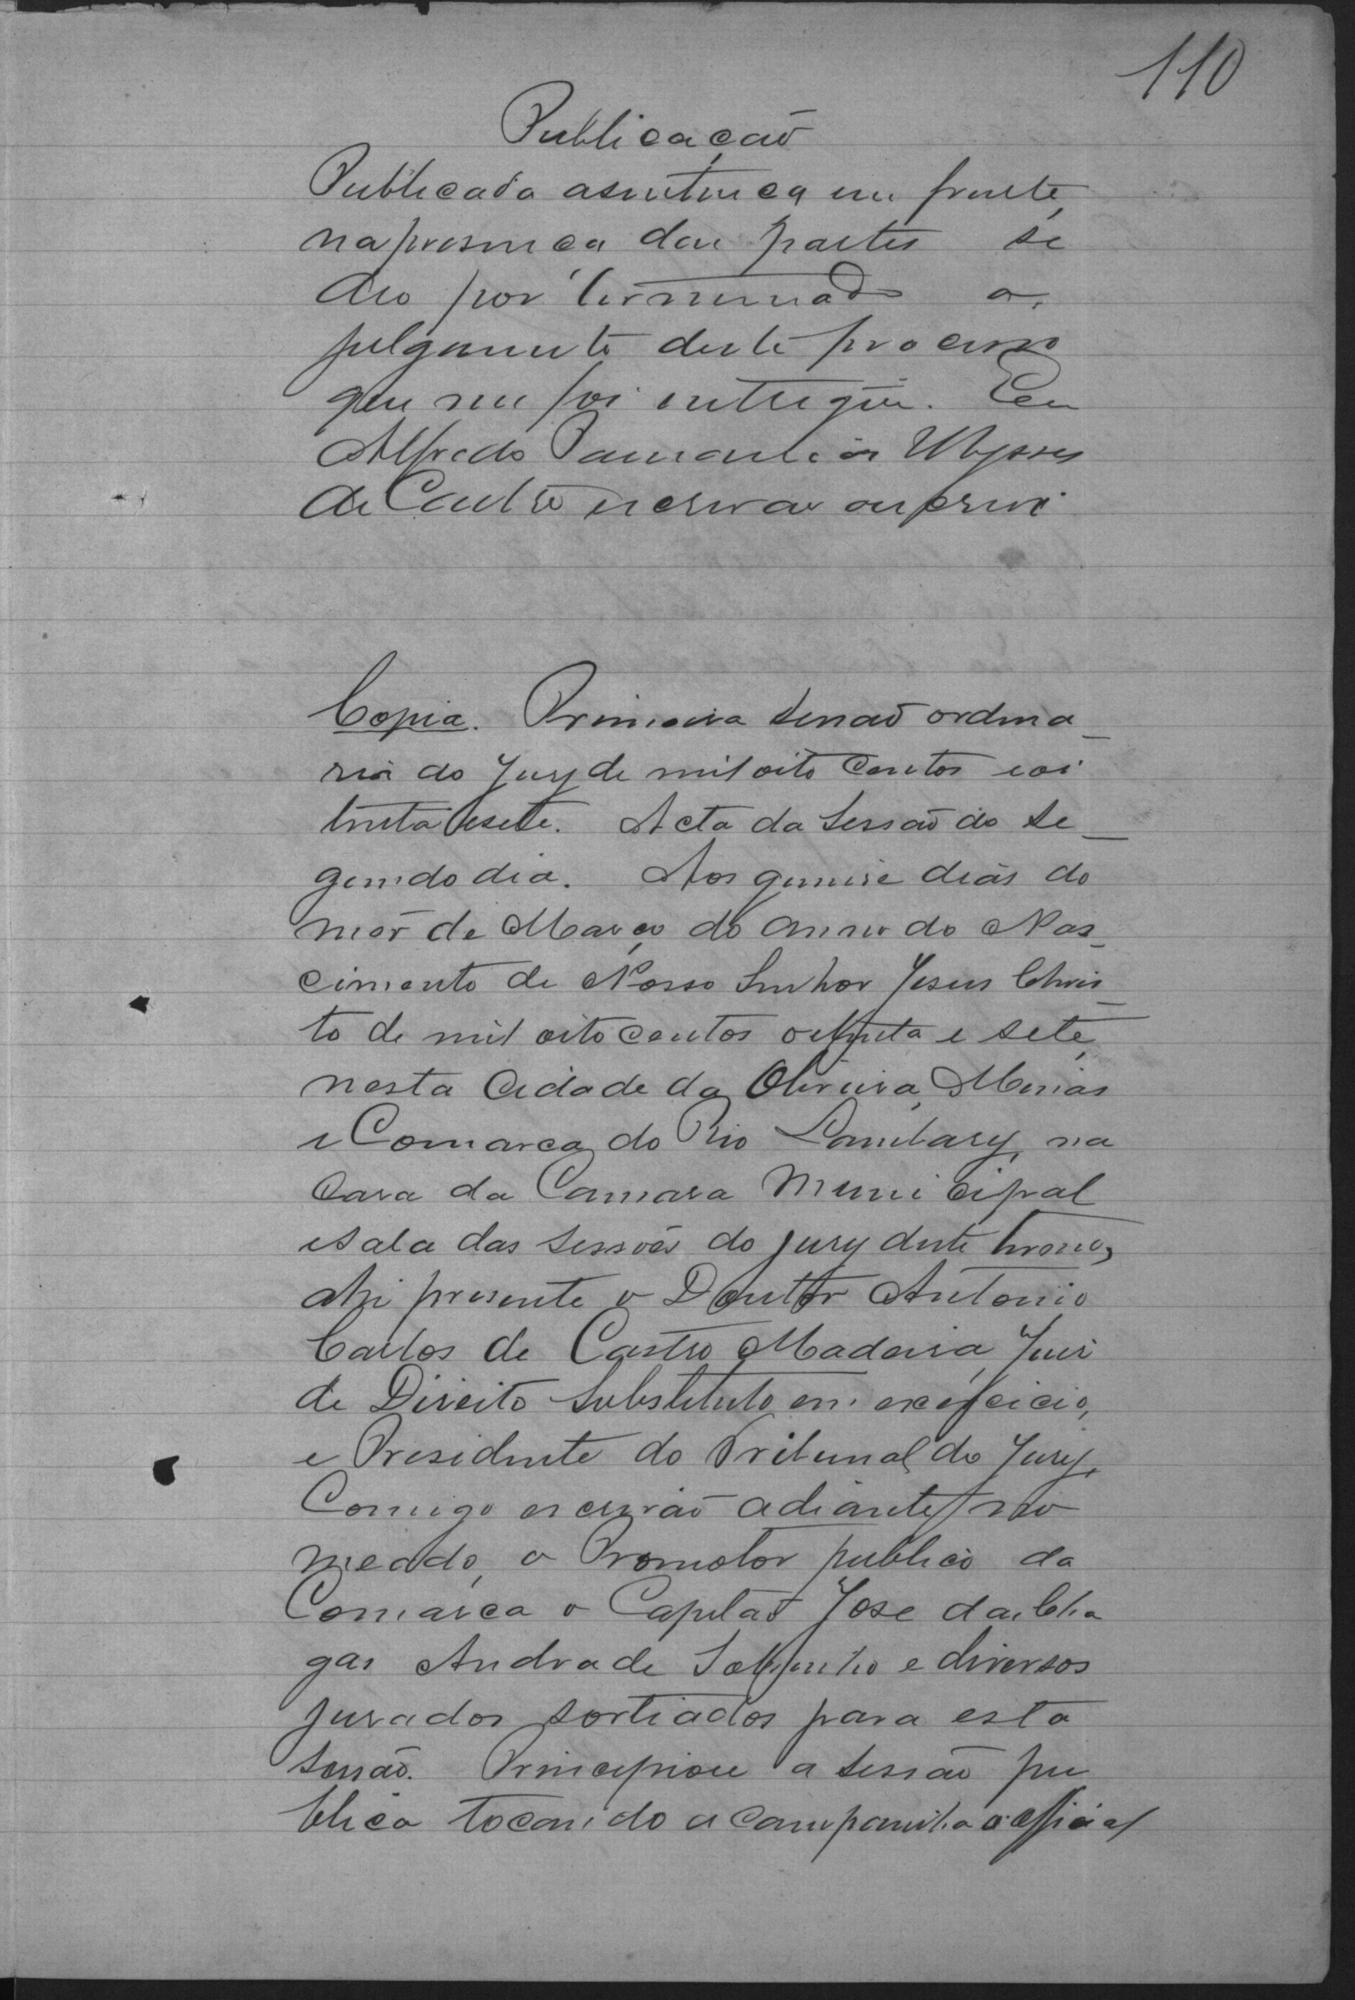 110
Publicação
Publicada asentença em frente
na presença das partes se
deo por terminado o
julgamento deste processo
que me foi entregue. Eu
Alfredo Ulysses
de Castro escrivão o escrevi
Copia. Primeira sessaõ ordina_
ria do Jury de mil oito centos eoi
tenta esete. Acta da Sessaõ do Se_
gundo dia. Aos quinse dias do
mes de Março do anno do Nas_
cimento de Nosso Senhor Jesus Chris_
to de mil oitocentos oitenta e sete,
nesta Cidade da Oliveira, Minas
e Comarca do Rio Lambary, na
Casa da Camara Municipal
esala das Sessões do Jury deste termo,
ahi presente o Doutor Antonio
Carlos de Castro Madeira, Juis
de Direito Substituto em exercicio,
e Presidente do Tribunal do Jury,
Comigo escrivão adiante no
meado, o Promotor publico da
Comarca o Capitaõ José das Cha
gas Andrade Sobrinho e diversos
jurados sortiados para esta
sessão. Principiou a sessaõ pu
blica tocando a campainha o official